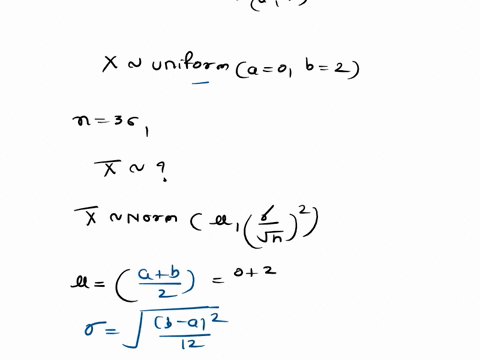 X ~ uniform (a=0, b=2)
n=36,
X̅ ~ ?
X̅ ~ Norm (μ, (σ/√n)²)
μ = ((a+b)/2) = 0+2
σ = √((b-a)²/12)